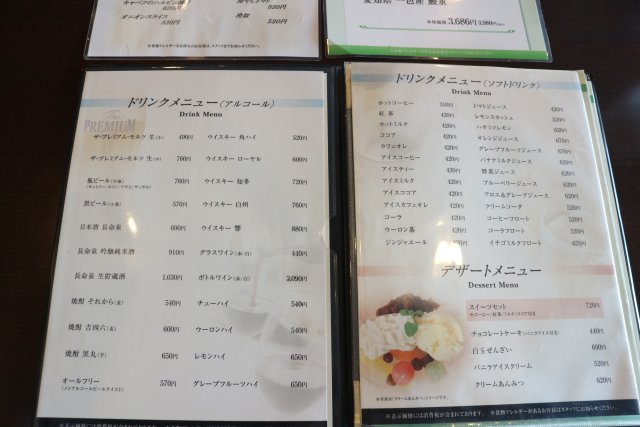 キャベツのハルピン漬け
620円
オニオンスライス 520円
冷やしトマト 520円
520円
愛知県 一色産 鰻重
本体価格 3,686円
ドリンクメニュー〈アルコール〉
Drink Menu
The PREMIUM
ザ・プレミアム・モルツ 生(小) 490円
ザ・プレミアム・モルツ 生(中) 760円
瓶ビール(中瓶) 760円
(サントリー・キリン・アサヒ・サッポロ)
黒ビール(小瓶) 570円
日本酒 長命泉 600円
長命泉 吟醸純米酒 910円
長命泉 生貯蔵酒 1,030円
焼酎 それから(麦) 540円
焼酎 吉四六(麦) 600円
焼酎 黒丸(芋) 650円
オールフリー 570円
(ノンアルコールビールテイスト)
ウイスキー 角ハイ 520円
ウイスキー ローヤル 600円
ウイスキー 知多 720円
ウイスキー 白州 760円
ウイスキー 響 880円
グラスワイン(赤/白) 440円
ボトルワイン(赤/白) 3,090円
チューハイ 540円
ウーロンハイ 540円
レモンハイ 650円
グレープフルーツハイ 650円
ドリンクメニュー〈ソフトドリンク〉
Drink Menu
ホットコーヒー 310円
紅茶 420円
ホットミルク 420円
ココア 420円
カフェオレ 420円
アイスコーヒー 420円
アイスティー 420円
アイスミルク 420円
アイスココア 420円
アイスカフェオレ 420円
コーラ 420円
ウーロン茶 420円
ジンジャエール 420円
トマトジュース 420円
レモンスカッシュ 520円
ハチミツレモン 420円
オレンジジュース 420円
グレープフルーツジュース 420円
バナナミルクジュース 620円
野菜ジュース 420円
ブルーベリージュース 420円
アロエ&グレープジュース 420円
クリームソーダ 520円
コーヒーフロート 520円
コーラフロート 520円
イチゴミルクフロート 670円
デザートメニュー
Dessert Menu
スイーツセット 720円
※コーヒー/紅茶/ミルク/ココア付き
チョコレートケーキ(バニラアイス付き) 440円
白玉ぜんざい 600円
バニラアイスクリーム 520円
クリームあんみつ 620円
※写真は(クリームあんみつ)イメージです。
※表示価格には消費税が含まれております。 ※食物アレルギーがあるお客様はスタッフにお知らせください。